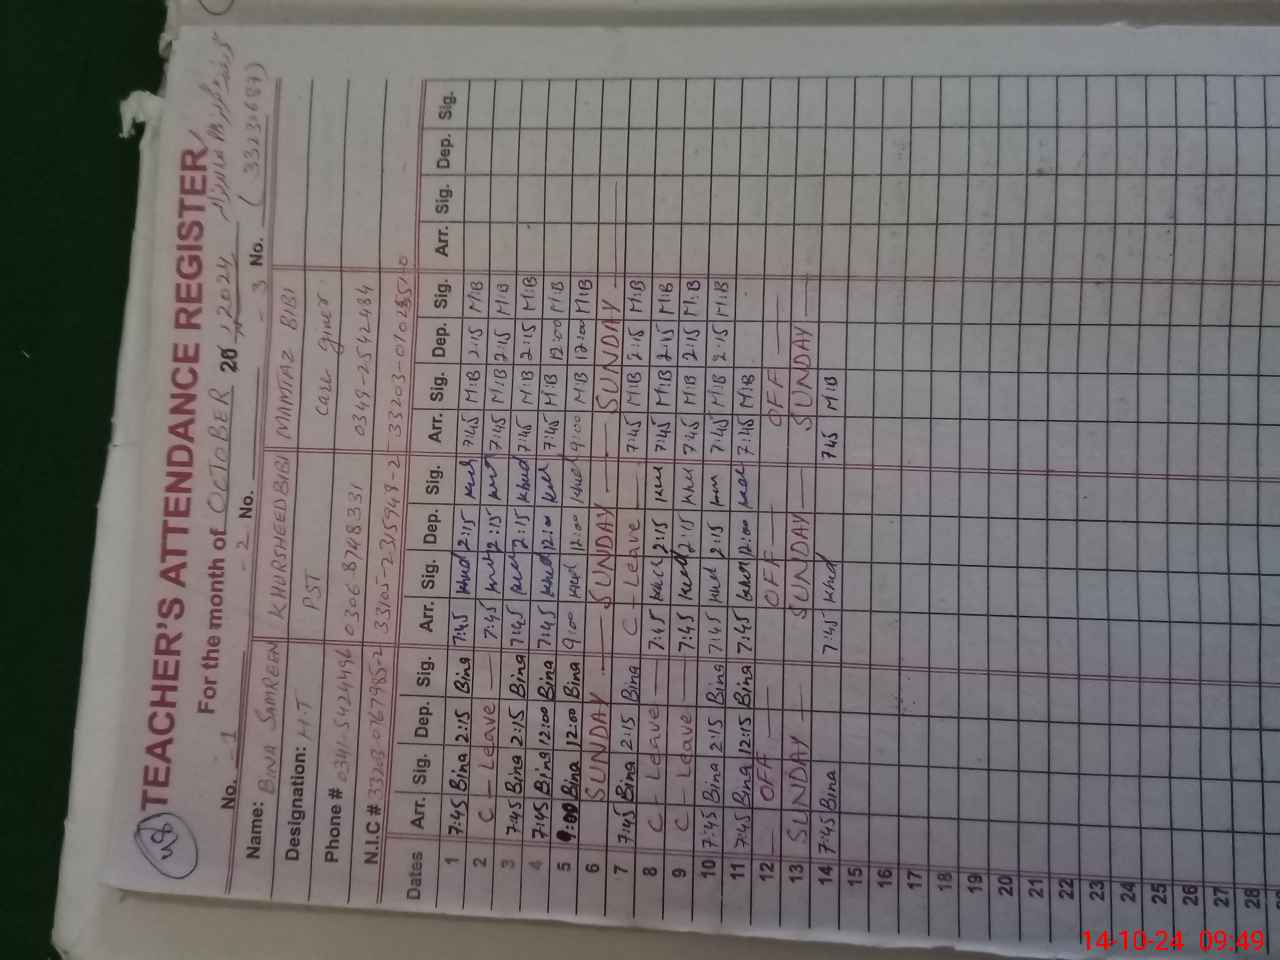 48
TEACHER'S ATTENDANCE REGISTER
For the month of OCTOBER 20 , 2024
No. -1 No. -2 No. -3 (33230687)
Name: BINA SAMREEN KHURSHEED BIBI MAMTAZ BIBI
Designation: H.T PST Care giver.
Phone # 0341-5424496 0306-8748331 0349-2542484
N.I.C # 33105-2315949-2
Dates Arr. Sig. Dep. Sig. Arr. Sig. Dep. Sig. Arr. Sig. Dep. Sig. Arr. Sig. Dep. Sig.
1 7:45 Bina 2:15 Bina 7:45 khud 2:15 7:45 M:B 2:15 M:B
2 C - Leave — 7:45 2:15 7:45 M:B 2:15 M:B
3 7:45 Bina 2:15 Bina 7:45 2:15 khud 7:45 M:B 2:15 M:B
4 7:45 Bina 12:00 Bina 7:45 khud 12:00 7:45 M:B 12:00 M:B
5 9:00 Bina 12:00 Bina 9:00 12:00 khud 9:00 M:B 12:00 M:B
6 SUNDAY — SUNDAY — SUNDAY —
7 7:45 Bina 2:15 Bina C - Leave — 7:45 M:B 2:15 M:B
8 C - Leave — 7:45 2:15 7:45 M:B 2:15 M:B
9 C - Leave — 7:45 2:15 7:45 M:B 2:15 M:B
10 7:45 Bina 2:15 Bina 7:45 2:15 7:45 M:B 2:15 M:B
11 7:45 Bina 12:15 Bina 7:45 12:00 7:45 M:B
12 — OFF — OFF — OFF —
13 SUNDAY — SUNDAY — SUNDAY —
14 7:45 Bina 7:45 khud 745 M:B
15
16
17
18
19
20
21
22
23
24
25
26
27
28
14-10-24 09:49